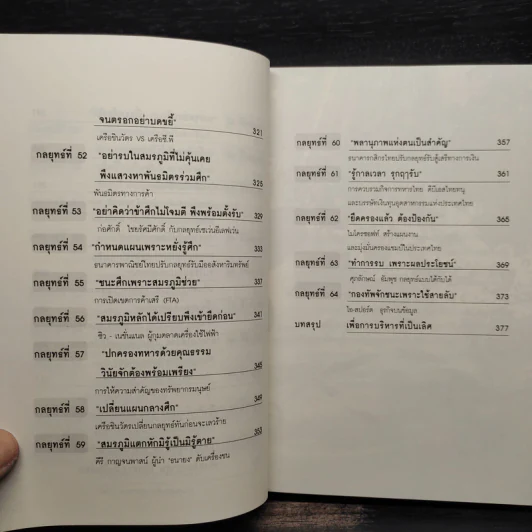 จนตรอกอย่าบดขยี้" 321
เครือชินวัตร VS เครือซี.พี
กลยุทธ์ที่ 52 "อย่ารบในสมรภูมิที่ไม่คุ้นเคย
พึงแสวงหาพันธมิตรร่วมศึก" 325
พันธมิตรทางการค้า
กลยุทธ์ที่ 53 "อย่าคิดว่าข้าศึกไม่โจมตี พึงพร้อมตั้งรับ" 329
ก่อศักดิ์ ไชยรัศมีศักดิ์ กับกลยุทธ์เซเว่นอีเลฟเว่น
กลยุทธ์ที่ 54 "กำหนดแผนเพราะหยั่งรู้ศึก" 333
ธนาคารพาณิชย์ไทยปรับกลยุทธ์รับมืออสังหาริมทรัพย์
กลยุทธ์ที่ 55 "ชนะศึกเพราะสมรภูมิช่วย" 337
การเปิดเขตการค้าเสรี (FTA)
กลยุทธ์ที่ 56 "สมรภูมิหลักได้เปรียบพึงเข้ายึดก่อน" 341
ซิว - เนชั่นแนล ผู้กุมตลาดเครื่องใช้ไฟฟ้า
กลยุทธ์ที่ 57 "ปกครองทหารด้วยคุณธรรม
วินัยจักต้องพร้อมเพรียง" 345
การให้ความสำคัญของทรัพยากรมนุษย์
กลยุทธ์ที่ 58 "เปลี่ยนแผนกลางศึก" 349
เครือชินวัตรเปลี่ยนกลยุทธ์ทันก่อนจะเลวร้าย
กลยุทธ์ที่ 59 "สมรภูมิแตกหักมิรู้เป็นมิรู้ตาย" 353
คีรี กาญจนพาสน์ ผู้นำ "ธนายง" ดับเครื่องชน
กลยุทธ์ที่ 60 "พลานุภาพแห่งตนเป็นสำคัญ" 357
ธนาคารกสิกรไทยปรับกลยุทธ์รับสู้เสรีทางการเงิน
กลยุทธ์ที่ 61 "รู้กาลเวลา รุกฤารับ" 361
การควบรวมกิจการทหารไทย ดีบีเอสไทยทนุ
และบรรษัทเงินทุนอุตสาหกรรมแห่งประเทศไทย
กลยุทธ์ที่ 62 "ยึดครองแล้ว ต้องป้องกัน" 365
ไมโครซอฟท์ สร้างแผนงาน
และมุ่งมั่นครองแชมป์ในประเทศไทย
กลยุทธ์ที่ 63 "ทำการรบ เพราะผลประโยชน์" 369
ศุภลักษณ์ อัมพุช กลยุทธ์แบบได้กับได้
กลยุทธ์ที่ 64 "กองทัพจักชนะเพราะใช้สายลับ" 373
ไอ-สปอร์ต ธุรกิจบนข้อมูล
บทสรุป เพื่อการบริหารที่เป็นเลิศ 377